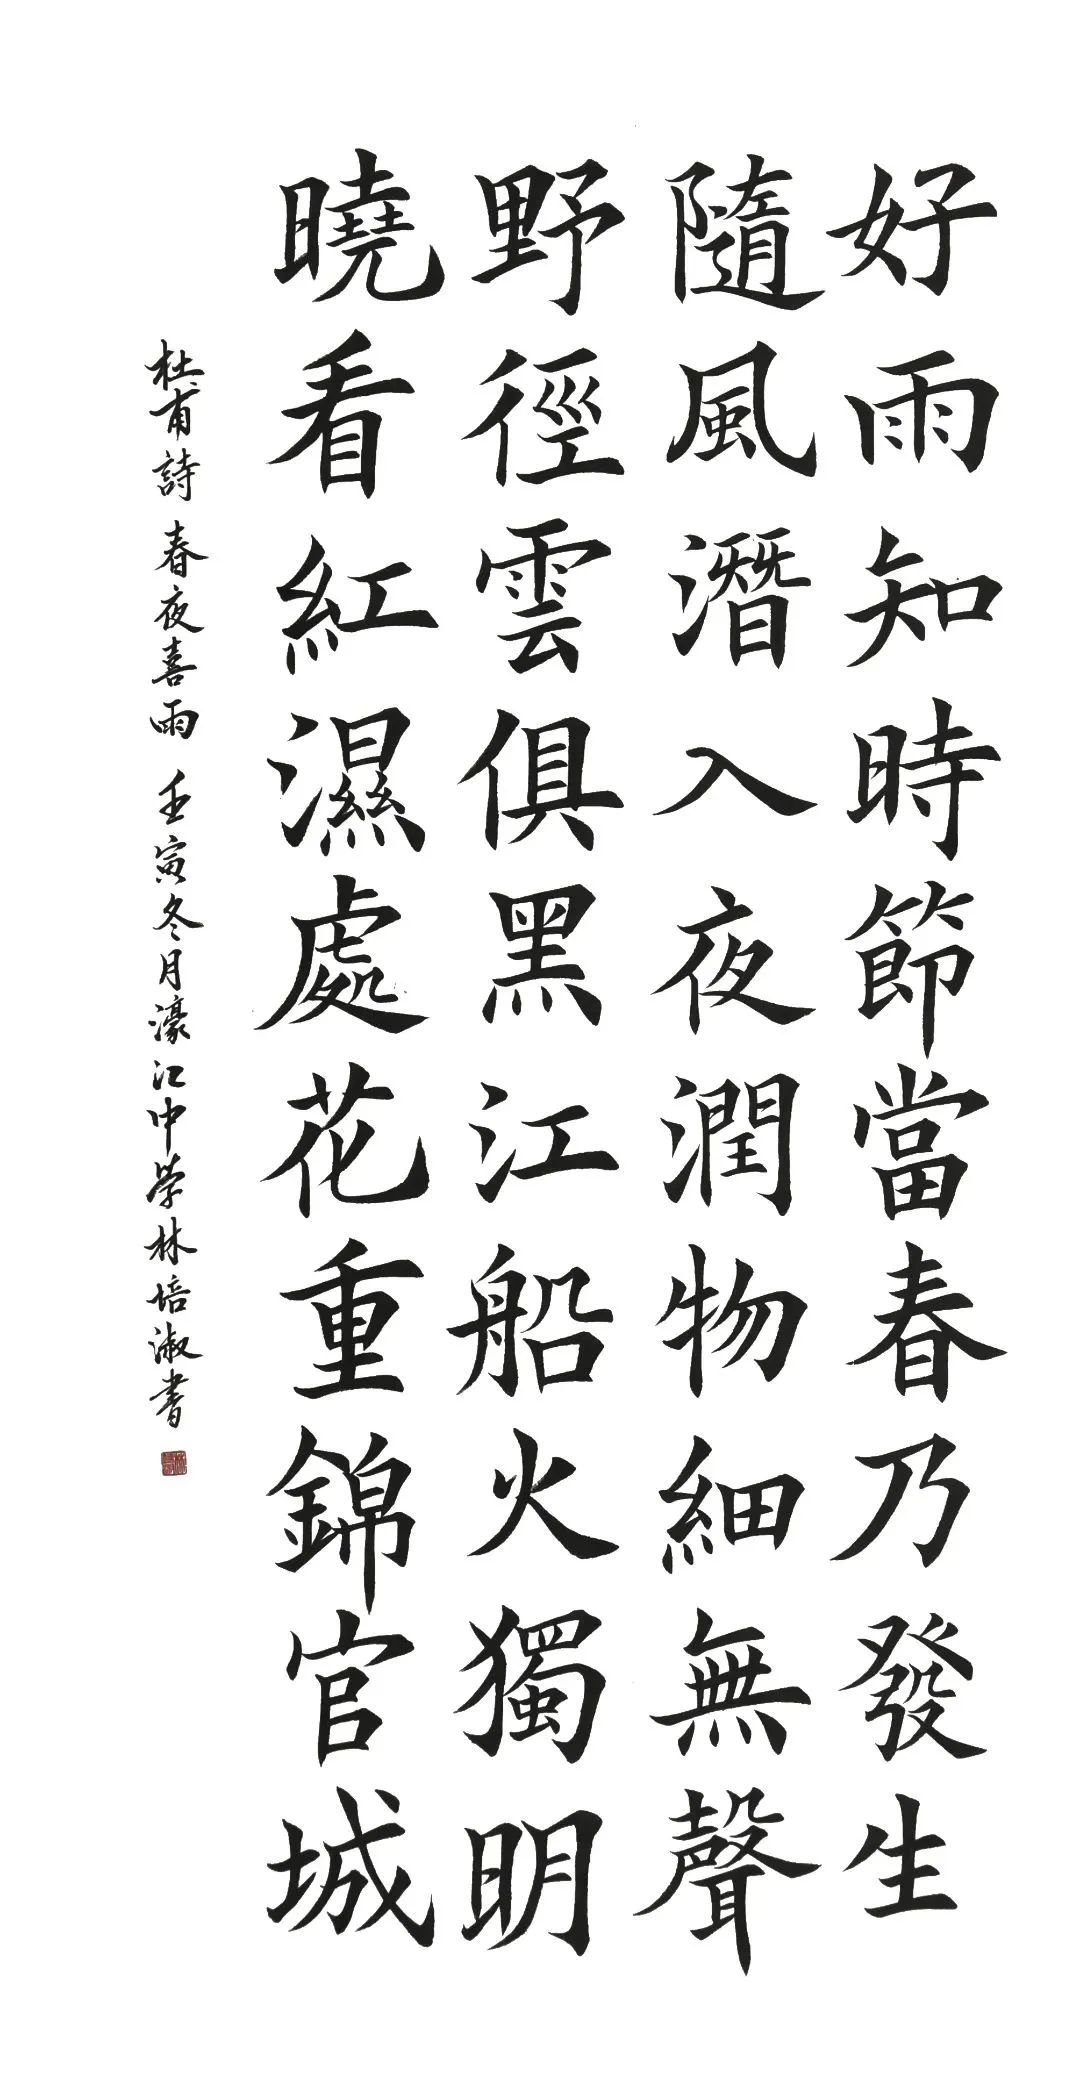 好雨知時節當春乃發生
隨風潛入夜潤物細無聲
野徑雲俱黑江船火獨明
曉看紅濕處花重錦官城
杜甫詩春夜喜雨壬寅冬月濠江中学林培淑書